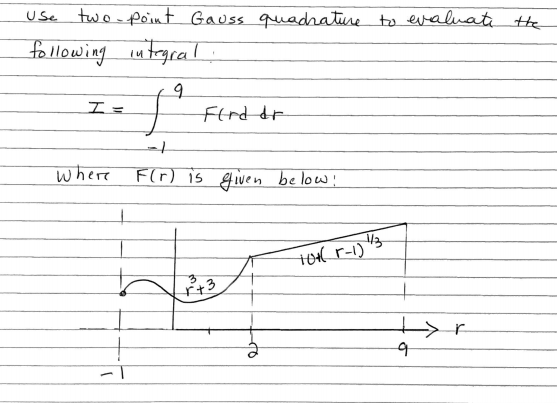 Use two-point Gauss quadrature to evaluate the
following integral:
I = ∫_{-1}^{9} F(r) dr
Where F(r) is given below:
r³+3
10+(r-1)^{1/3}
r
2
9
-1